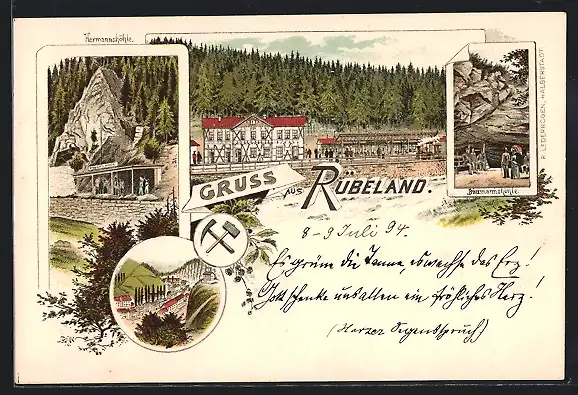 Hermannshöhle.
GRUSS
AUS
RUBELAND.
Baumannshöhle.
R. LEDERBOGEN, HALBERSTADT
8-9 Juli 94.
Es grüne die Tanne, es wachse das Erz!
Gott schenke uns allen ein fröhliches Herz!
(Harzer Segensspruch)